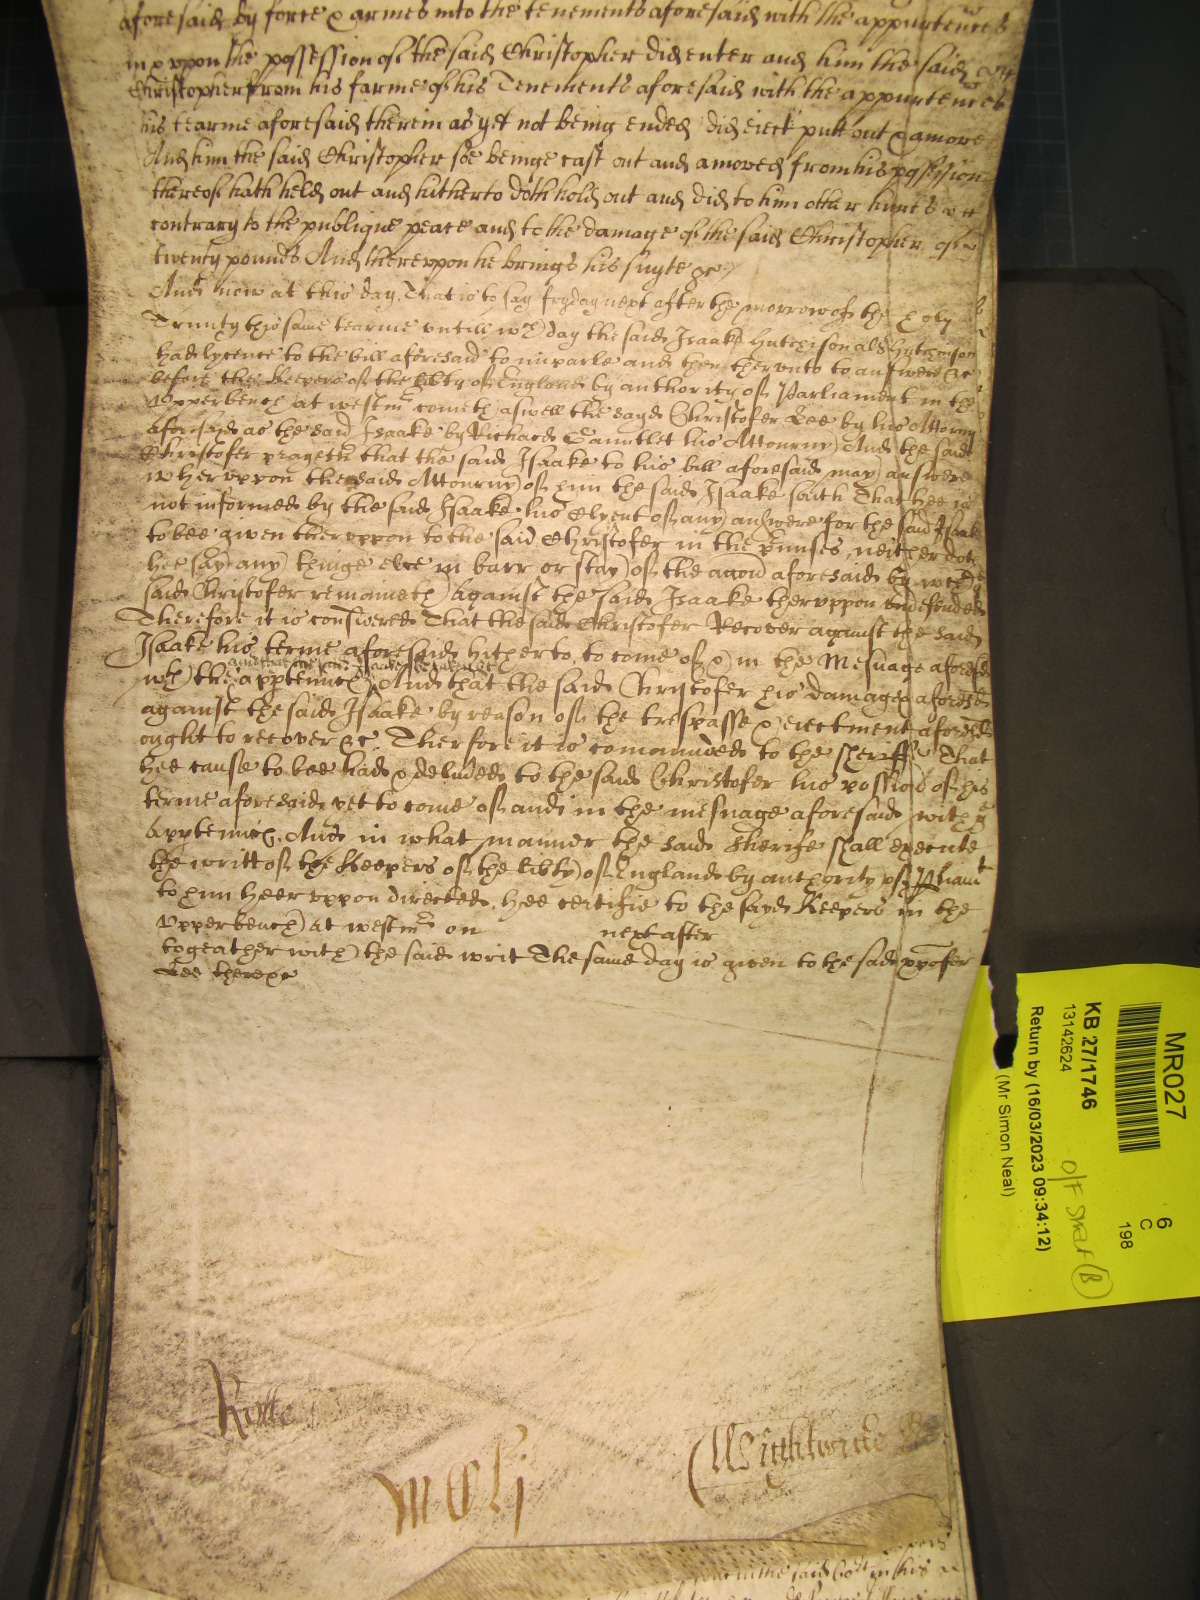 aforesaid by force & armes into the tenements aforesaid with the appurtences
in & vpon the possession of the said Christopher did enter and him the said
Christopher from his farme of his Tenements aforesaid with the appurtences
his tearme aforesaid therein as yet not being ended did eiect putt out & amove
And him the said Christopher soe beinge cast out and amoved from his possession
thereof hath held out and hitherto doth hold out and did to him other hurts
contrary to the publique peace and to the damage of the said Christopher of
twenty pounds And therevpon he brings his suyte &c
And now at this day That is to say fryday next after the morrow of the holy
Trinity this same tearme vntill wch day the said Isaake Hutchison als Hutchinson
had lycence to the bill aforesaid to imparle and then thervnto to answere &c
before the Keepers of the libty of England by authority of Parliament in the
Vpperbench at westmr cometh aswell the sayd Christofer Lee by his Attorny
aforesayd as the said Isaake by Richard Gauntlet his Attourny And the said
Christofer prayeth that the said Isaake to his bill aforesaid may answere
whervppon the said Attourny of him the said Isaake saith That hee is
not informed by the said Isaake his clyent of any answere for the said Isaak
to bee given thervppon to the said Christofer in the pmises neither doth
hee say any thinge else in barr or stay of the accon aforesaid by wch
said Christofer remaineth against the said Isaake thervppon vndefended
Therefore it is considered That the said Christofer Recover against the said
Isaake his terme aforesaid hitherto to come of & in the Mesuage aforesd
and that the said Isaake
wth the apptenncs And that the said Christofer his damages aforesd
against the said Isaake by reason of the trespasse & eiectment aforesd
ought to recover &c Therfore it is comannded to the sheriffe That
hee cause to bee had & delivled to the said Christofer his possion of his
terme aforesaid yet to come of and in the mesuage aforesaid with ye
apptenncs And in what manner the said sherife shall execute
the writt of the Keepers of the libty of England by authority of Pliamt
to him heervppon directed hee certifie to the sayd Keepers in the
Vpperbench at westmr on next after
togeather with the said writ The same day is given to the said xpofer
Lee there &c
Rolle
Wightwicke
MR027
KB 27/1746
13142624
Return by (16/03/2023 09:34:12)
(Mr Simon Neal)
6
C
198
O/F
(B)